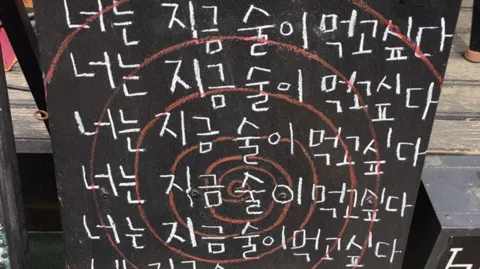 너는 지금 술이 먹고싶다
너는 지금 술이 먹고싶다
너는 지금 술이 먹고싶다
너는 지금 술이 먹고싶다
너는 지금 술이 먹고싶다